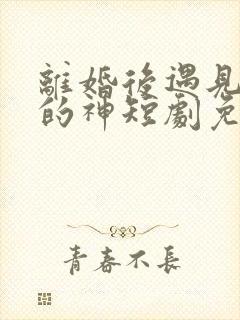 離婚後遇見
的神短劇免
青春不長